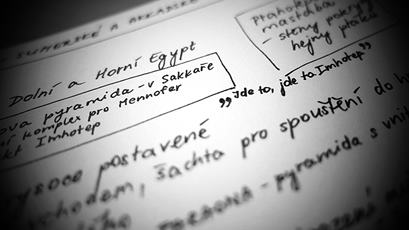 SUMERSKÉ A AKKADSKÉ
Dolní a Horní Egypt
Ptahotep
mastaba
- stěny pokryty
hejny ptáků
ova pyramida - v Sakkaře
ní komplex pro Mennofer
kt Imhotep
„Jde to, jde to Imhotep"
vysoce postavené
chodem, šachta pro spouštění do h
FARAONA - pyramida s vni